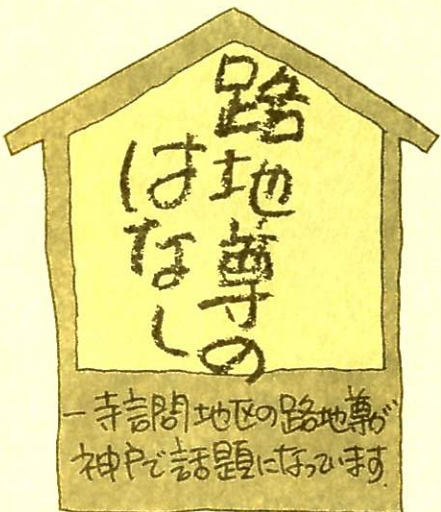 路地尊の
はなし
一寺言問地区の路地尊が
神戸で話題になっています.